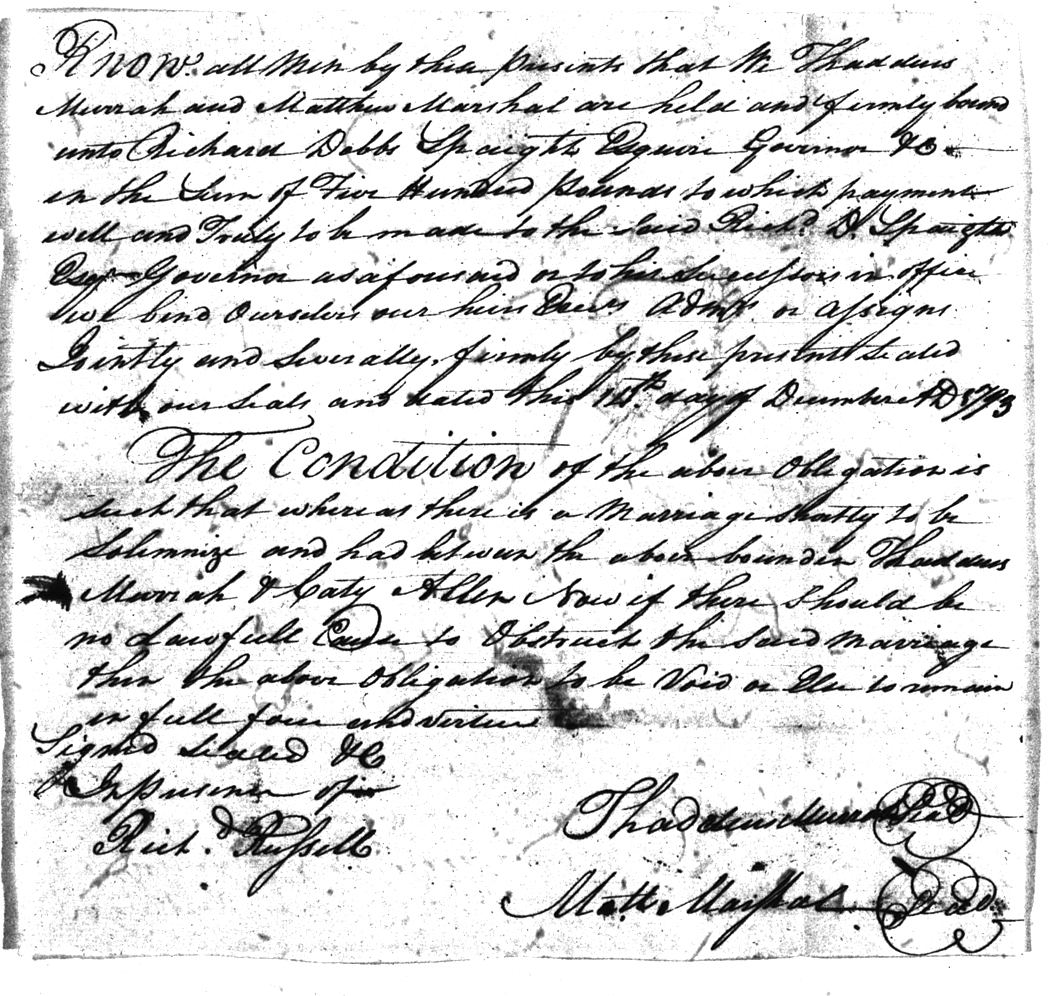 Know all Men by these presents that We Thaddeus
Murrah and Matthew Marshal are held and firmly bound
unto Richard Dobbs Spaight Esquire Governor &C
in the Sum of Five Hundred pounds to which payment
well and Truly to be made to the said Richd. D. Spaight
Esqr Governor as afousaid or to his Successors in office
we bind Ourselves our heirs Exers Admrs or assigns
Jointly and Severally, firmly by these presents Sealed
with our Seals and dated this 14th. day of December AD 1793
The Condition of the above Obligation is
such that whereas there is a Marriage shortly to be
Solemnize and had between the above bounden Thaddeus
Murrah & Caty Allen Now if there should be
no Lawfull Cause to Obstruct the said marriage
then the above Obligation to be Void or Else to remain
in full force and virtue
Signed Sealed &C
In presence of
Richd. Russell
Thaddeus Murrah Seal
Matt. Marshal Seal